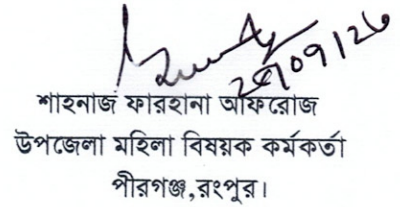 ২৫/০৭/২৬
শাহনাজ ফারহানা আফরোজ
উপজেলা মহিলা বিষয়ক কর্মকর্তা
পীরগঞ্জ,রংপুর।